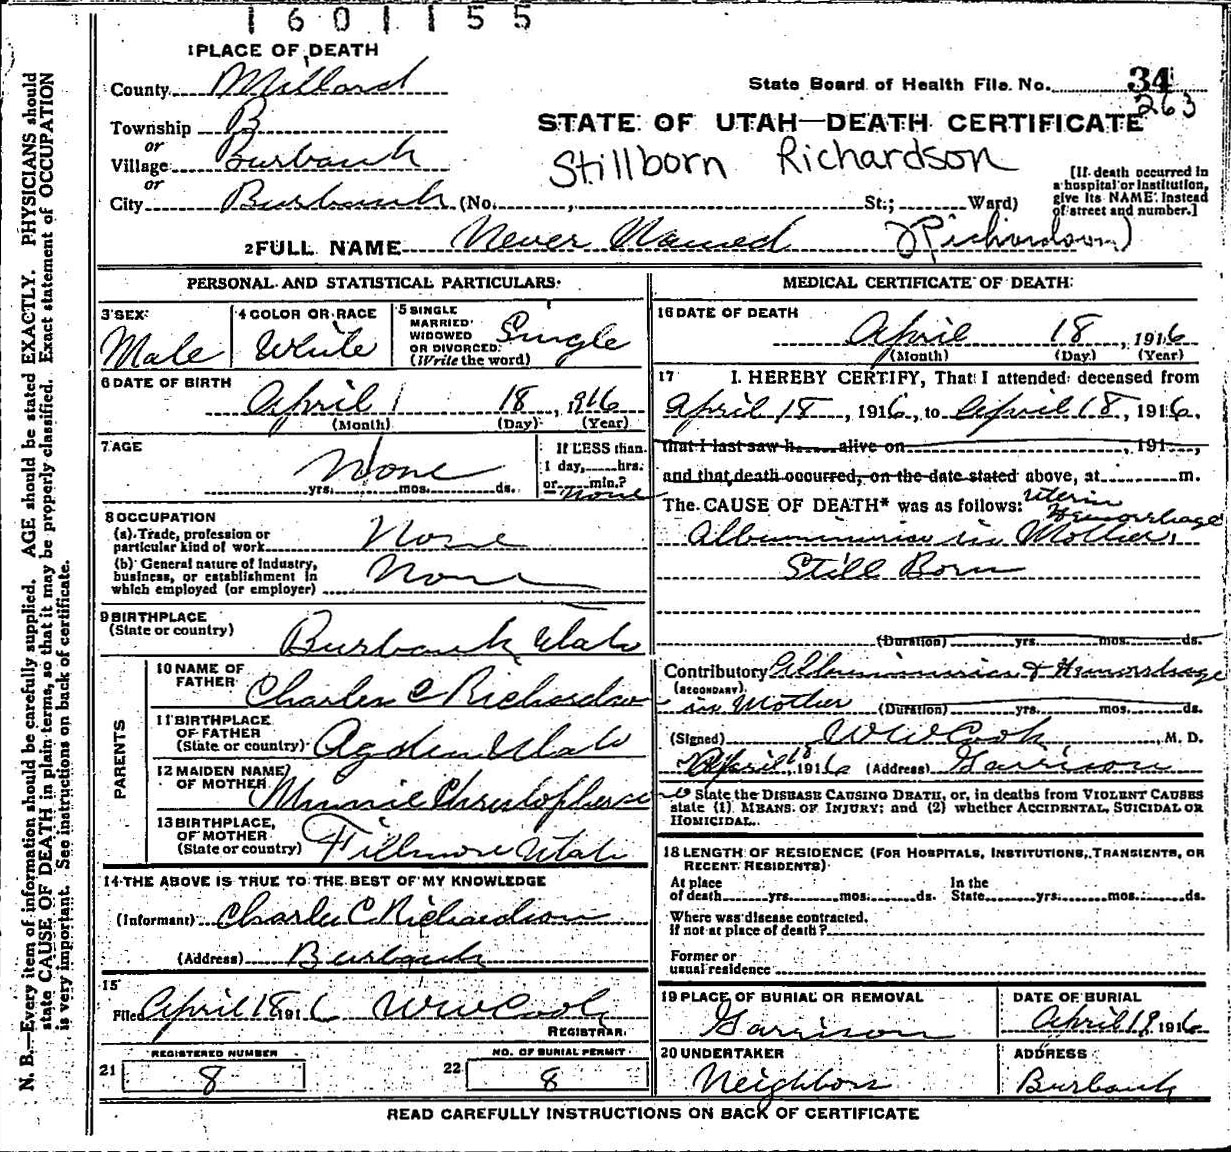 1601155
1 PLACE OF DEATH
County Millard
State Board of Health File No. 34
263
Township B
or
Village Burbank
or
City Burbank (No. , St.; Ward)
STATE OF UTAH—DEATH CERTIFICATE
Stillborn Richardson
[If death occurred in
a hospital or institution,
give its NAME instead
of street and number.]
2 FULL NAME Never Named (Richardson)
PERSONAL AND STATISTICAL PARTICULARS
3 SEX
Male
4 COLOR OR RACE
White
5 SINGLE
MARRIED
WIDOWED
OR DIVORCED
(Write the word)
Single
6 DATE OF BIRTH
April 18, 1916
(Month) (Day) (Year)
7 AGE
None
yrs. mos. ds.
If LESS than
1 day, hrs.
or min.?
None
8 OCCUPATION
(a) Trade, profession or
particular kind of work None
(b) General nature of Industry,
business, or establishment in
which employed (or employer) None
9 BIRTHPLACE
(State or country) Burbank Utah
PARENTS
10 NAME OF
FATHER Charles C Richardson
11 BIRTHPLACE
OF FATHER
(State or country) Ogden Utah
12 MAIDEN NAME
OF MOTHER Minnie Christophersen
13 BIRTHPLACE
OF MOTHER
(State or country) Fillmore Utah
14 THE ABOVE IS TRUE TO THE BEST OF MY KNOWLEDGE
(Informant) Charles C Richardson
(Address) Burbank
15
Filed April 18 1916 W W Cook
REGISTRAR.
21 REGISTERED NUMBER
8
22 NO. OF BURIAL PERMIT
8
MEDICAL CERTIFICATE OF DEATH
16 DATE OF DEATH
April 18, 1916
(Month) (Day) (Year)
17 I HEREBY CERTIFY, That I attended deceased from
April 18, 1916, to April 18, 1916,
that I last saw h alive on , 191 ,
and that death occurred, on the date stated above, at m.
The CAUSE OF DEATH* was as follows: Uterin
Hemorrhage
Albuminuria in Mother.
Still Born
(Duration) yrs. mos. ds.
Contributory Albuminuria & Hemorrhage
(SECONDARY)
in Mother (Duration) yrs. mos. ds.
(Signed) W W Cook, M. D.
April 18, 1916 (Address) Garrison
State the DISEASE CAUSING DEATH, or, in deaths from VIOLENT CAUSES
state (1) MEANS OF INJURY; and (2) whether ACCIDENTAL, SUICIDAL OR
HOMICIDAL.
18 LENGTH OF RESIDENCE (FOR HOSPITALS, INSTITUTIONS, TRANSIENTS, OR
RECENT RESIDENTS)
At place In the
of death yrs. mos. ds. State yrs. mos. ds.
Where was disease contracted,
if not at place of death?
Former or
usual residence
19 PLACE OF BURIAL OR REMOVAL
Garrison
DATE OF BURIAL
April 19 1916
20 UNDERTAKER
Neighbors
ADDRESS
Burbank
READ CAREFULLY INSTRUCTIONS ON BACK OF CERTIFICATE
N. B.—Every item of information should be carefully supplied. AGE should be stated EXACTLY. PHYSICIANS should
state CAUSE OF DEATH in plain terms, so that it may be properly classified. Exact statement of OCCUPATION
is very important. See instructions on back of certificate.